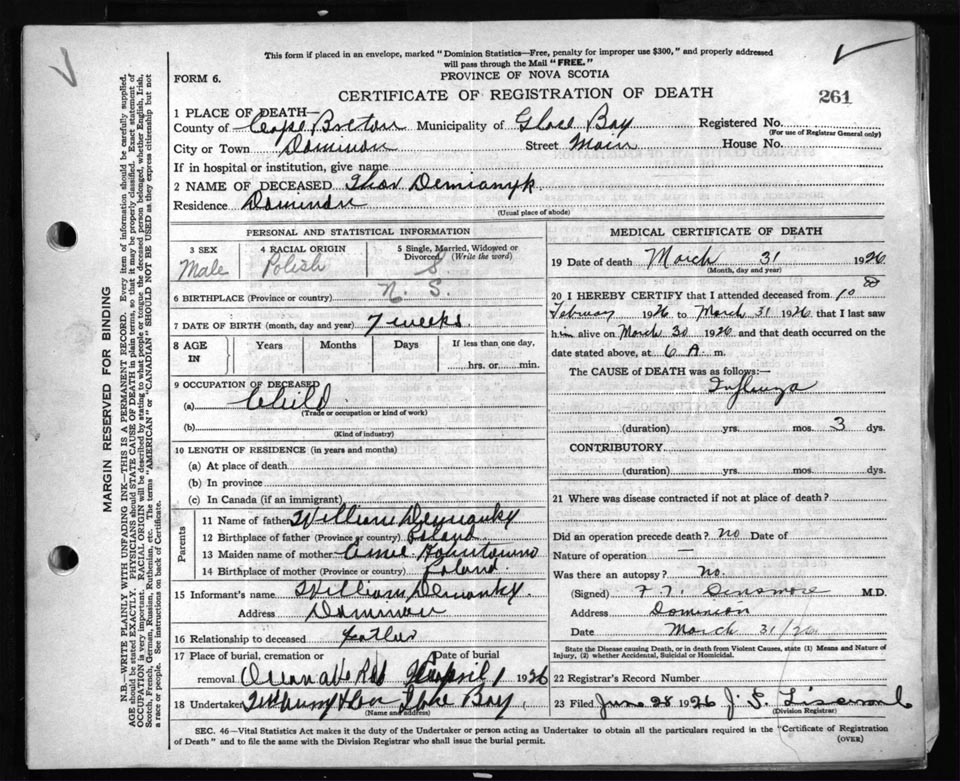 This form if placed in an envelope, marked "Dominion Statistics—Free, penalty for improper use $300," and properly addressed
will pass through the Mail "FREE."
FORM 6.
PROVINCE OF NOVA SCOTIA
CERTIFICATE OF REGISTRATION OF DEATH
261
1 PLACE OF DEATH—
County of Cape Breton Municipality of Glace Bay Registered No.
(For use of Registrar General only)
City or Town Dominion Street Main House No.
If in hospital or institution, give name
2 NAME OF DECEASED Thos Demianyk
Residence Dominion
(Usual place of abode)
PERSONAL AND STATISTICAL INFORMATION
3 SEX
Male
4 RACIAL ORIGIN
Polish
5 Single, Married, Widowed or
Divorced (Write the word)
S.
6 BIRTHPLACE (Province or country) N. S.
7 DATE OF BIRTH (month, day and year) 7 weeks.
8 AGE IN
Years
Months
Days
If less than one day,
hrs. or min.
9 OCCUPATION OF DECEASED
(a) Child
(Trade or occupation or kind of work)
(b)
(Kind of industry)
10 LENGTH OF RESIDENCE (in years and months)
(a) At place of death
(b) In province
(c) In Canada (if an immigrant)
Parents
11 Name of father William
12 Birthplace of father (Province or country) Poland
13 Maiden name of mother Annie
14 Birthplace of mother (Province or country) Poland
15 Informant's name William
Address Dominion
16 Relationship to deceased father
17 Place of burial, cremation or
removal
Date of burial
April 1 1926
18 Undertaker Glace Bay
(Name and address)
MEDICAL CERTIFICATE OF DEATH
19 Date of death March 31 1926
(Month, day and year)
20 I HEREBY CERTIFY that I attended deceased from 10
February 1926 to March 31 1926 that I last saw
him alive on March 30 1926 and that death occurred on
date stated above, at 6 A. m.
The CAUSE of DEATH was as follows:—
Influenza
(duration) yrs. mos. 3 dys.
CONTRIBUTORY
(duration) yrs. mos. dys.
21 Where was disease contracted if not at place of death?
Did an operation precede death? no Date of
Nature of operation —
Was there an autopsy? no.
(Signed) Densmore M.D.
Address Dominion
Date March 31/26
State the Disease causing Death, or in death from Violent Causes, state (1) Means and Nature of
Injury, (2) whether Accidental, Suicidal or Homicidal.
22 Registrar's Record Number
23 Filed June 28 1926 J. S.
(Division Registrar)
SEC. 46—Vital Statistics Act makes it the duty of the Undertaker or person acting as Undertaker to obtain all the particulars required in the "Certificate of Registration
of Death" and to file the same with the Division Registrar who shall issue the burial permit.
(OVER)
MARGIN RESERVED FOR BINDING
N.B.—WRITE PLAINLY WITH UNFADING INK—THIS IS A PERMANENT RECORD. Every item of information should be carefully supplied.
AGE should be stated EXACTLY. PHYSICIANS should STATE CAUSE OF DEATH in plain terms, so that it may be properly classified. Exact statement of
OCCUPATION is very important. RACIAL ORIGIN will be described by stating to what people or tongue the deceased person belonged, whether English, Irish,
Scotch, French, German, Russian, Ruthenian, etc. The terms "AMERICAN" or "CANADIAN" SHOULD NOT BE USED as they express citizenship but not
a race or people. See instructions on back of Certificate.